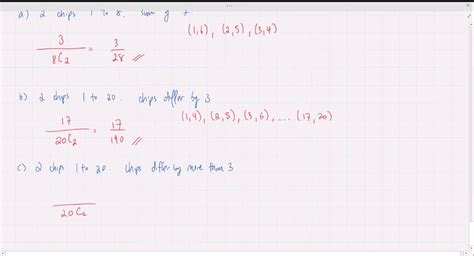 a) 2 chips 1 to 8. sum of 7
3 / 8C₂ = 3 / 28 //
(1,6), (2,5), (3,4)
b) 2 chips 1 to 20. chips differ by 3
17 / 20C₂ = 17 / 190 //
(1,4), (2,5), (3,6), .... (17,20)
c) 2 chips 1 to 20. chips differ by more than 3
20C₂